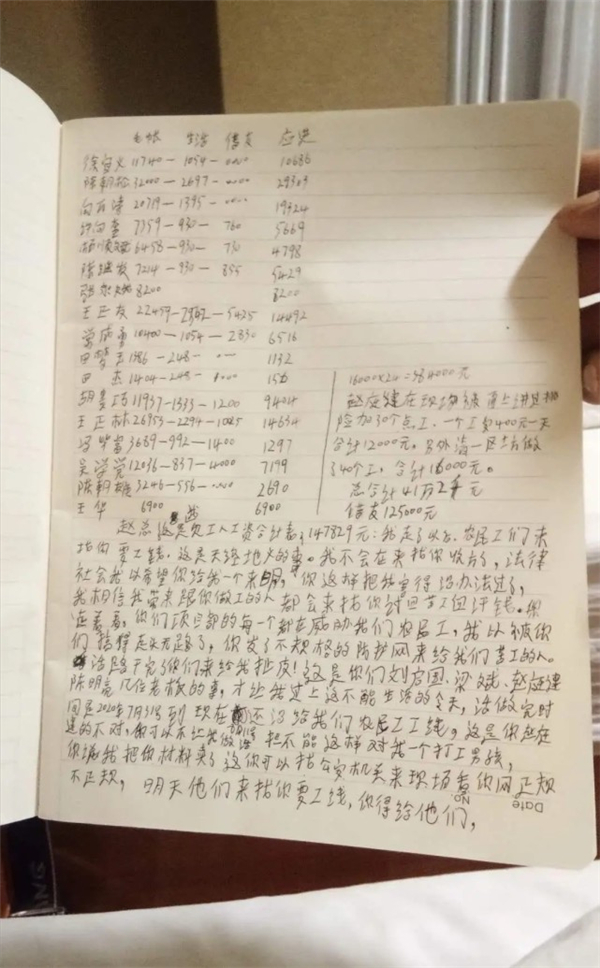 毛帐 生活 借支 应进
11740—1054—0000 10686
陈朝松 32000—2697—0000 29303
20719—1395—0000 19324
7359—930—760 5669
6458—930—730 4798
陈继发 7214—930—855 5429
8200 8200
王正友 22459—2542—5425 14492
10400—1054—2830 6516
田 1386—248—0000 1132
田杰 1404—248—0000
胡 11937—1333—1200 9404
王正林 26953—2294—1025 14634
冯 3689—992—1400 1297
吴学党 12036—837—4000 7199
陈朝 3246—556—0000 2690
王华 6900 6900
16000×24=384000元
赵应建在现场
加30个点工.一个工 400元一天
合计12000元.另外清一区土方做
了40个工,合计16000元。
总合计41万2千元
借支125000元
赵总这是员工人工资合计表:147829元:我走了以后.农民工们来
找你要工钱.这是天经地义的事。我不会在来找你收方了,法律
社会我以希望你给我一个来明,你这样把我害得沿办法过了,
我相信我带来跟你做工的人都会来找你讨回苦工血汗钱.
你们项目部的每一个都在威协我们农民工,我以被你
们 走头无路了,你发了不规格的防护网来给我们苦工的人。
沿路干完了你们来给我扯皮!这是你们刘启国.梁斌.赵应建
陈明亮几位老板的事,才让我过上这不能生活的今天,活做完时
间是2020年7月31号到现在还沿给我们农民工工线,这是你赵应
建的不对,你可以不让我做活 但不能这样对我一个打工男孩,
你说我把你材料卖了这你可以找公安机关来现场看你网正规
不正规, 明天他们来找你要工线,你得给他们,
Date
No